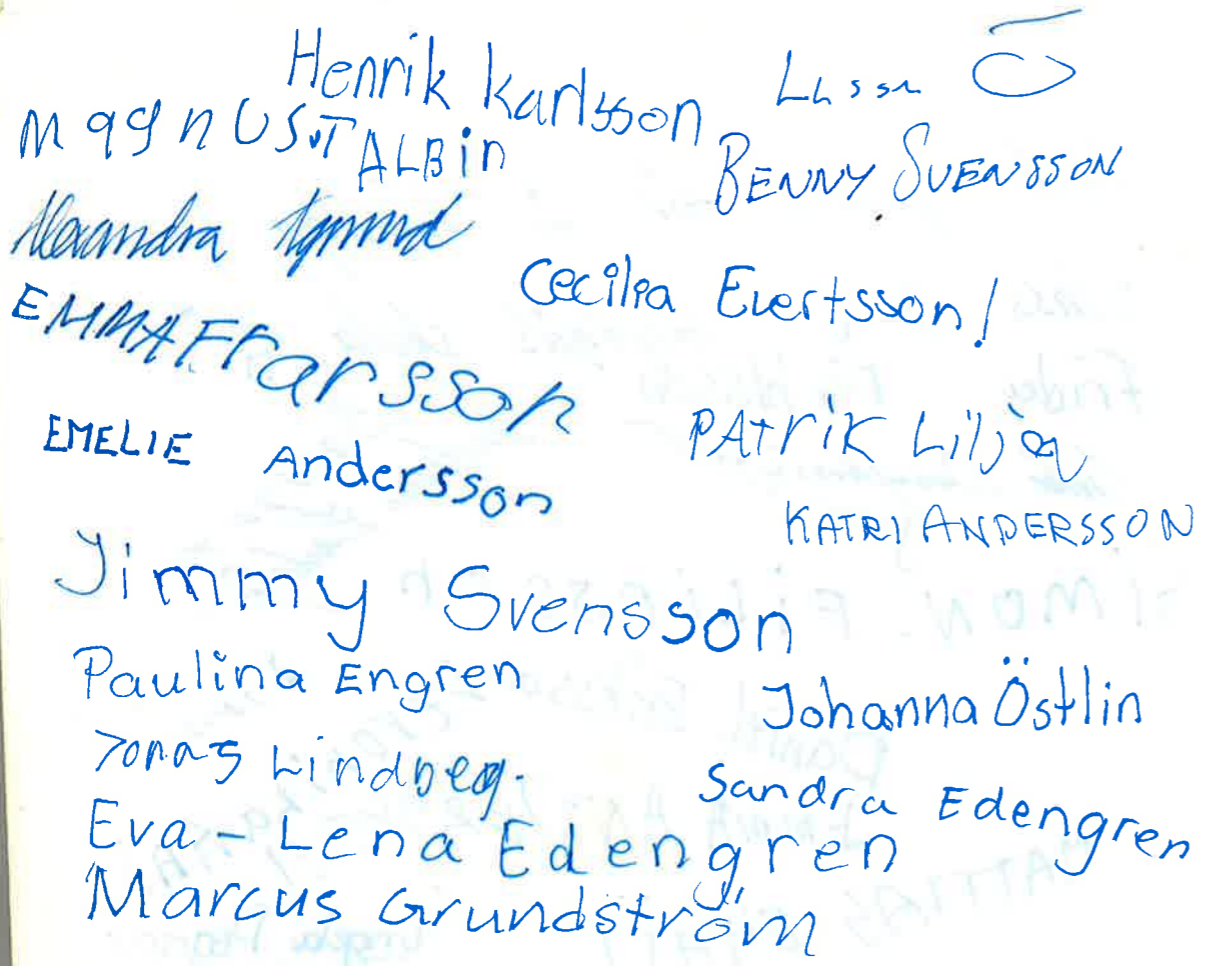 Henrik Karlsson
Magnus.T ALBin
BENNY SVENSSON
Alexandra
Cecilia Evertsson!
EMMA Ffarsson
EMELIE Andersson
PAtrik Lilja
KATRI ANDERSSON
Jimmy Svensson
Paulina Engren
Johanna Östlin
Jonas Lindberg.
Sandra Edengren
Eva-Lena Edengren
Marcus Grundström